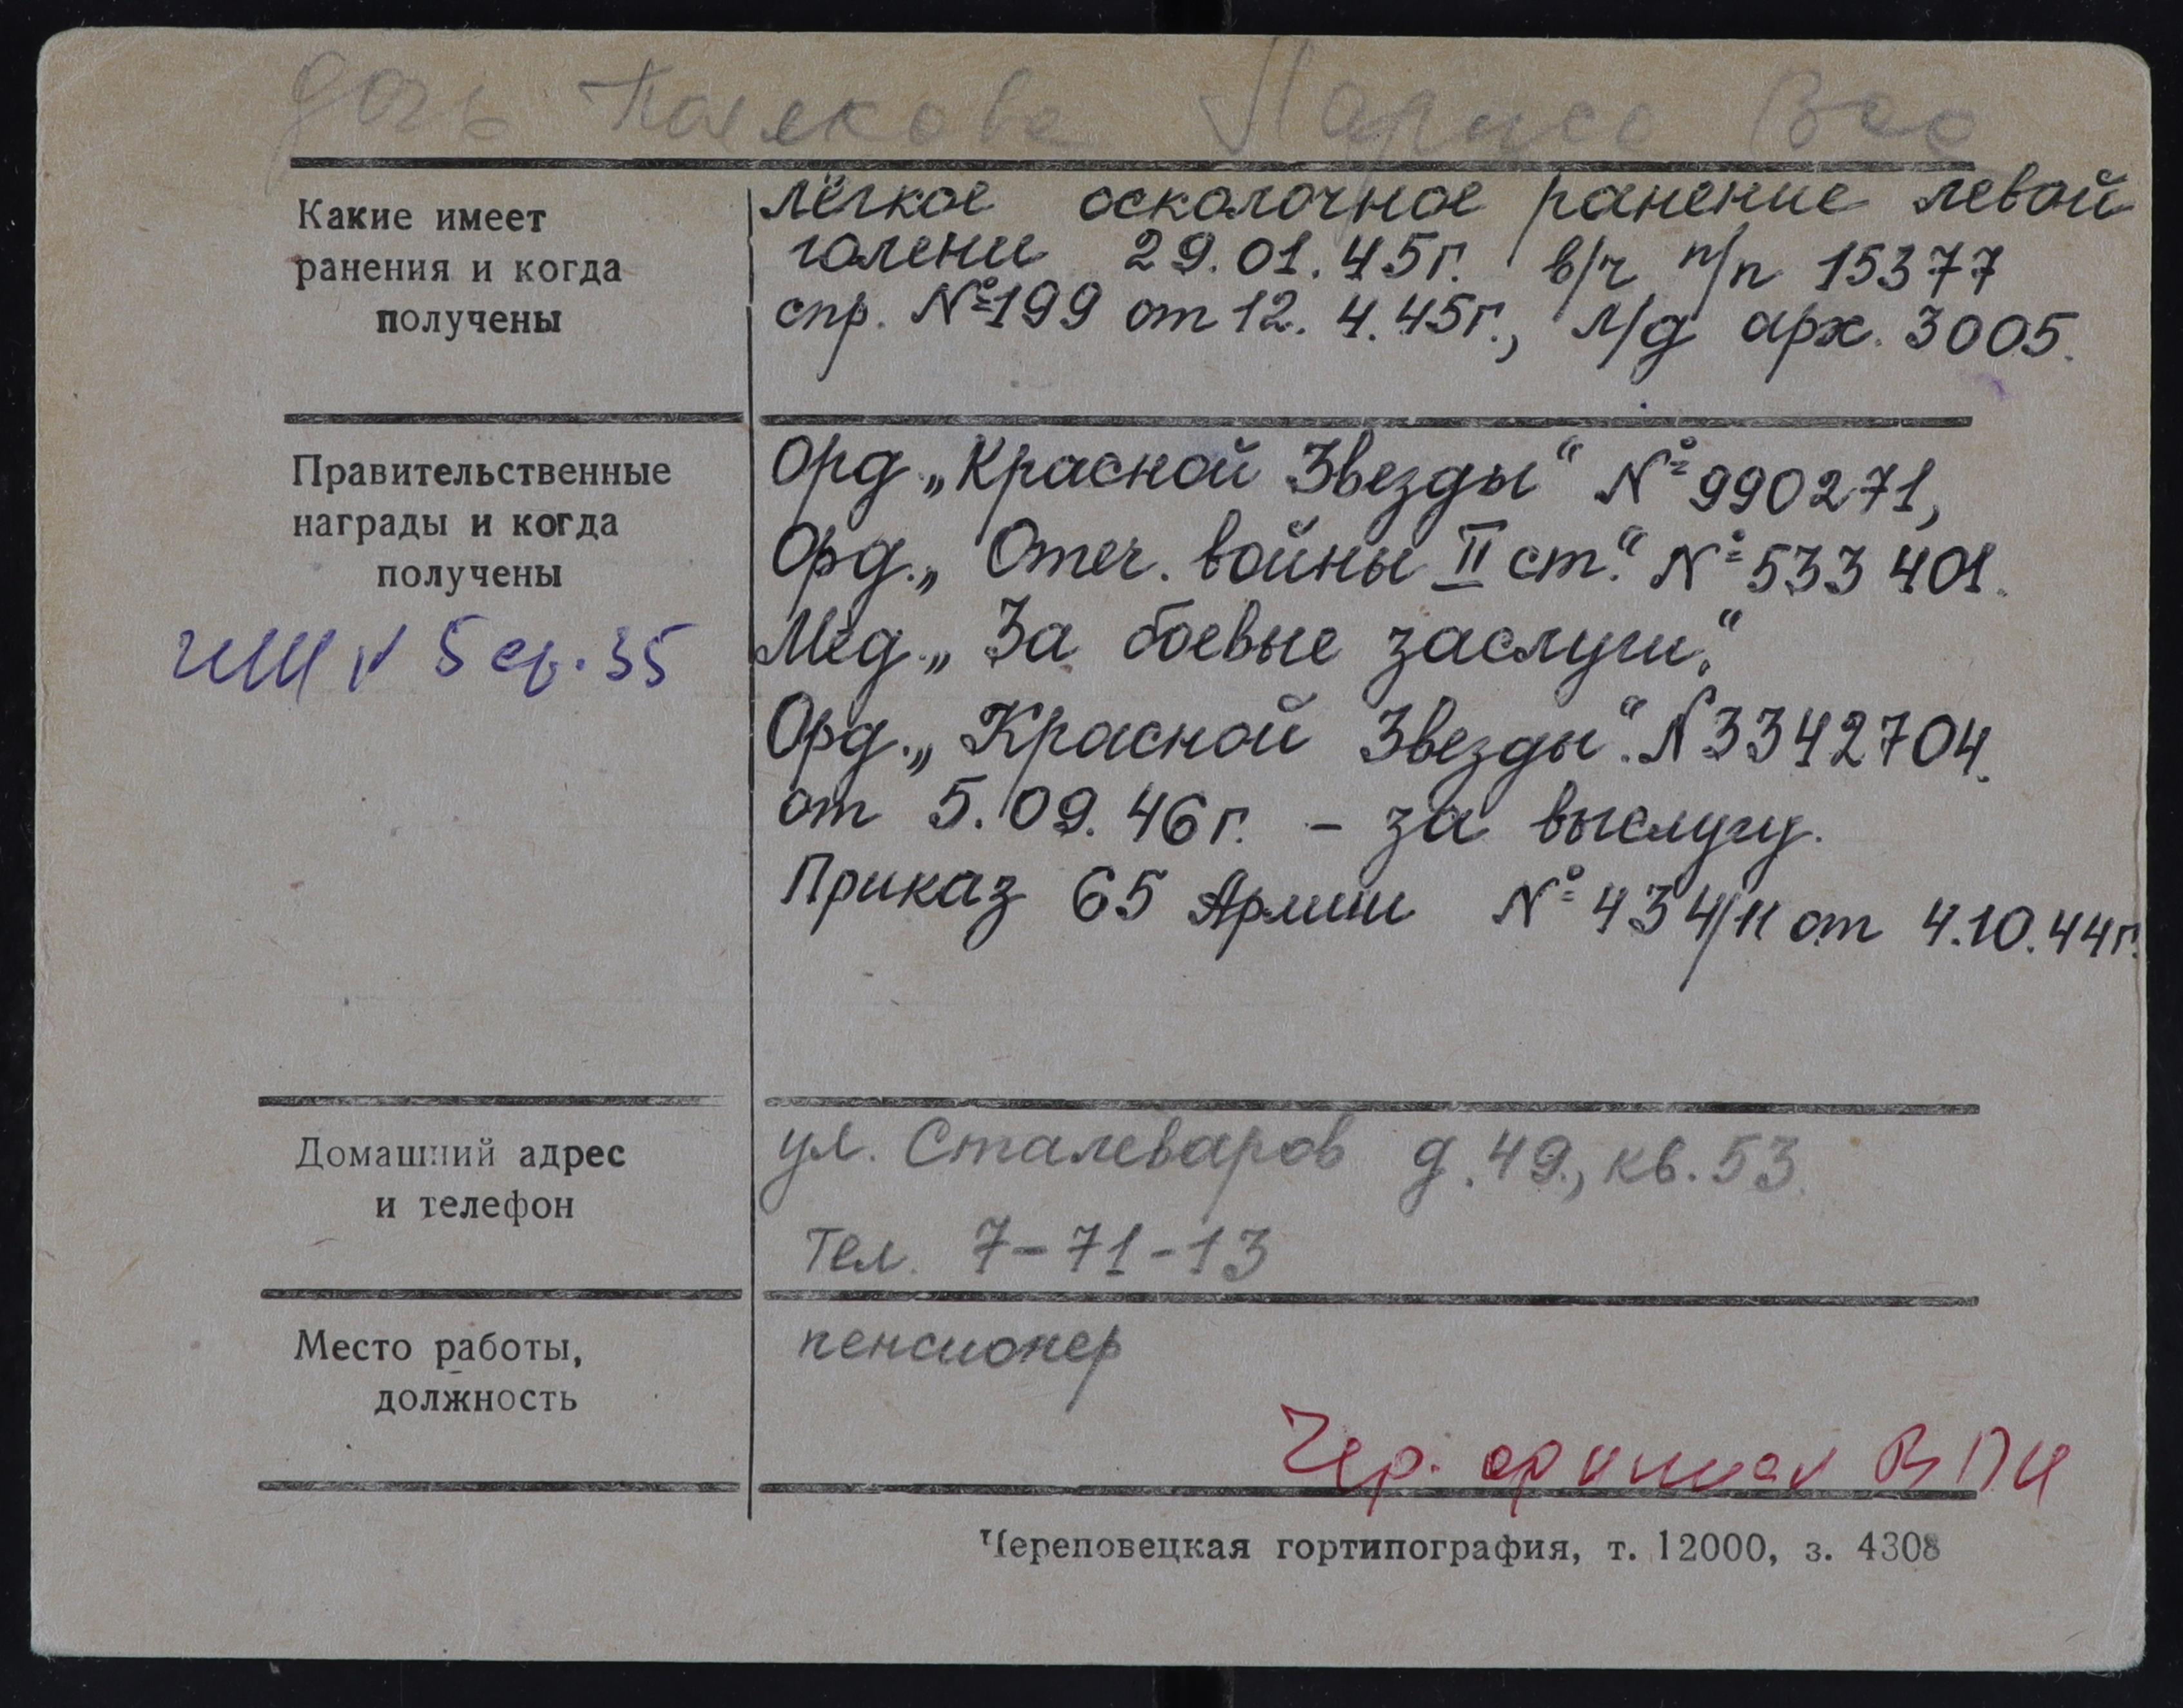 дочь Лариса Вас
Какие имеет
ранения и когда
получены
лёгкое осколочное ранение левой
голени 29.01.45г. в/ч п/п 15377
спр. №199 от 12.4.45г., л/д арх. 3005.
Правительственные
награды и когда
получены
№ 5 ср. 35
Орд „Красной Звезды“ № 990271,
Орд. „Отеч. войны II ст.“ № 533401.
Мед. „За боевые заслуги“.
Орд. „Красной Звезды“. N 3342704.
от 5.09.46г. – за выслугу.
Приказ 65 Армии № 434/11 от 4.10.44г.
Домашний адрес
и телефон
ул. Сталеваров д. 49., кв. 53.
Тел. 7-71-13
Место работы,
должность
пенсионер
Чер. ВПИ
Череповецкая гортипография, т. 12000, з. 4308